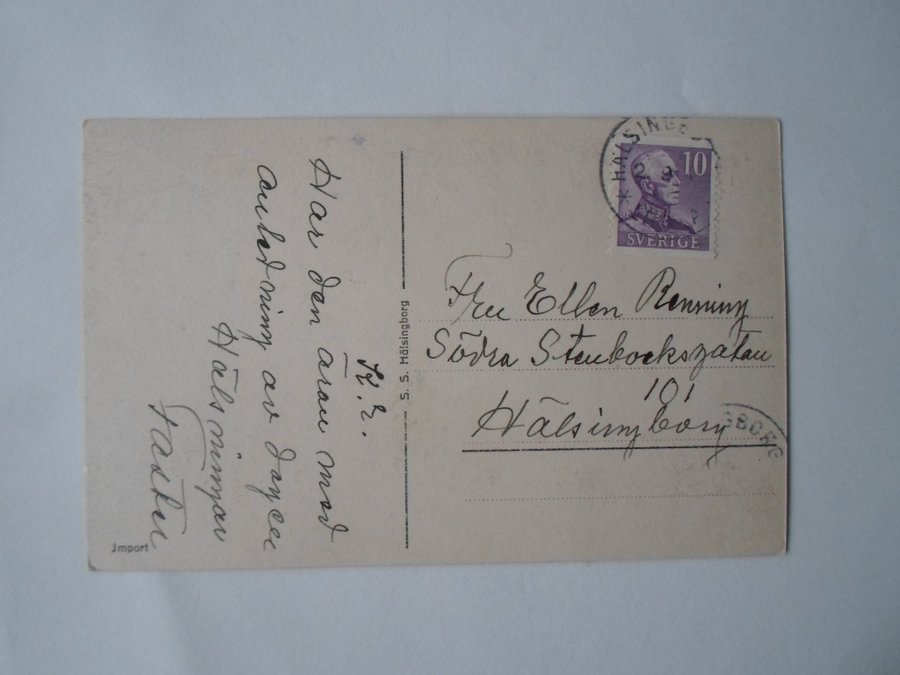 K. E.
Har den äran med
anledning av dagen
Hälsningar
Faster
Jmport
S. S. Hälsingborg
HÄLSINGBO
10
SVERIGE
Fru Ellen Renning
Södra Stenbocksgatan
101
Hälsingborg
GBORG